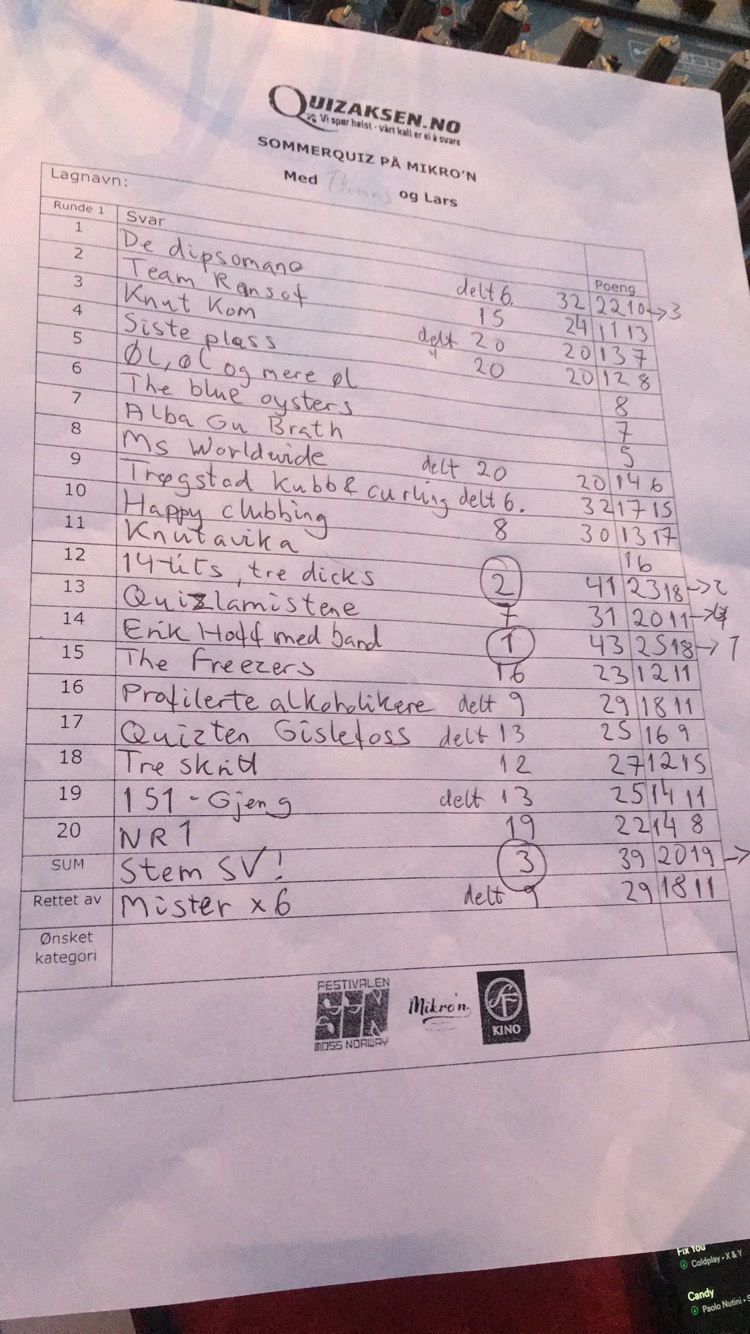 QUIZAKSEN.NO
Vi spør helst - vårt kall er ei å svare
SOMMERQUIZ PÅ MIKRO'N
Med og Lars
Lagnavn:
Runde 1 Svar Poeng
1 De dipsomane delt 6. 32 22 10 → 3
2 Team Ransof 15 24 11 13
3 Knut Kom delt 20 20 13 7
4 Siste plass 20 20 12 8
5 ØL, øl og mere øl 8
6 The blue oysters 7
7 Alba Gu Brath 5
8 Ms Worldwide delt 20 20 14 6
9 Trøgstad kubb & curling delt 6. 32 17 15
10 Happy clubbing 8 30 13 17
11 Knutavika 16
12 14-tits, tre dicks 2 41 23 18 → 2
13 Quizlamistene 7 31 20 11 → 4
14 Erik Hoff med band 1 43 25 18 → 1
15 The Freezers 16 23 12 11
16 Profilerte alkoholikere delt 9 29 18 11
17 Quizten Gislefoss delt 13 25 16 9
18 Tre skritt 12 27 12 15
19 151-Gjeng delt 13 25 14 11
20 NR1 19 22 14 8
SUM Stem SV! 3 39 20 19 →
Rettet av Mister x6 delt 9 29 18 11
Ønsket
kategori
FESTIVALEN
SIN
MOSS NORWAY
Mikro'n
SF
KINO
Fix You
Coldplay • X & Y
Candy
Paolo Nutini •